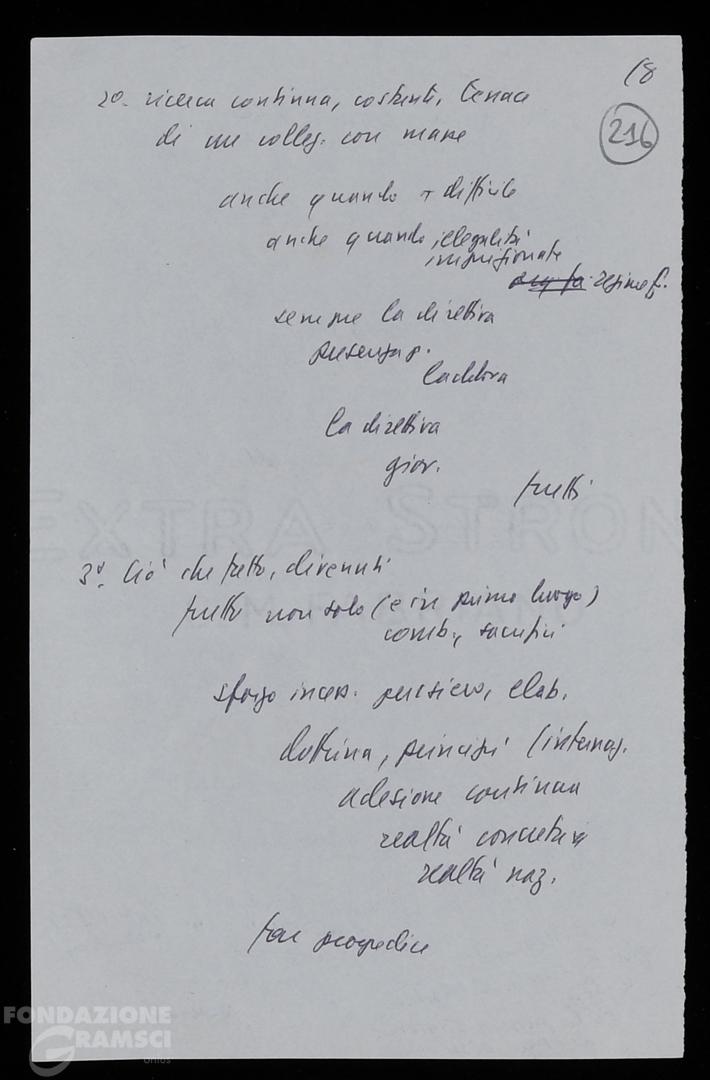 18
216
2º- ricerca continua, costante, tenace
di un colleg. con masse
anche quando + difficile
anche quando illegalità
imprigionate
regime f.
sempre la direttiva
presenza p.
laddove
la direttiva
giov.
tutti
EXTRA STRON
3º. Ciò che fatto, divenuti
frutto non solo (e in primo luogo)
comb., sacrifici
sforzo incess. pensiero, elab.
dottrina, principi (internaz.
adesione continua
realtà concreta
realtà naz.
far progredire
FONDAZIONE
GRAMSCI
onlus